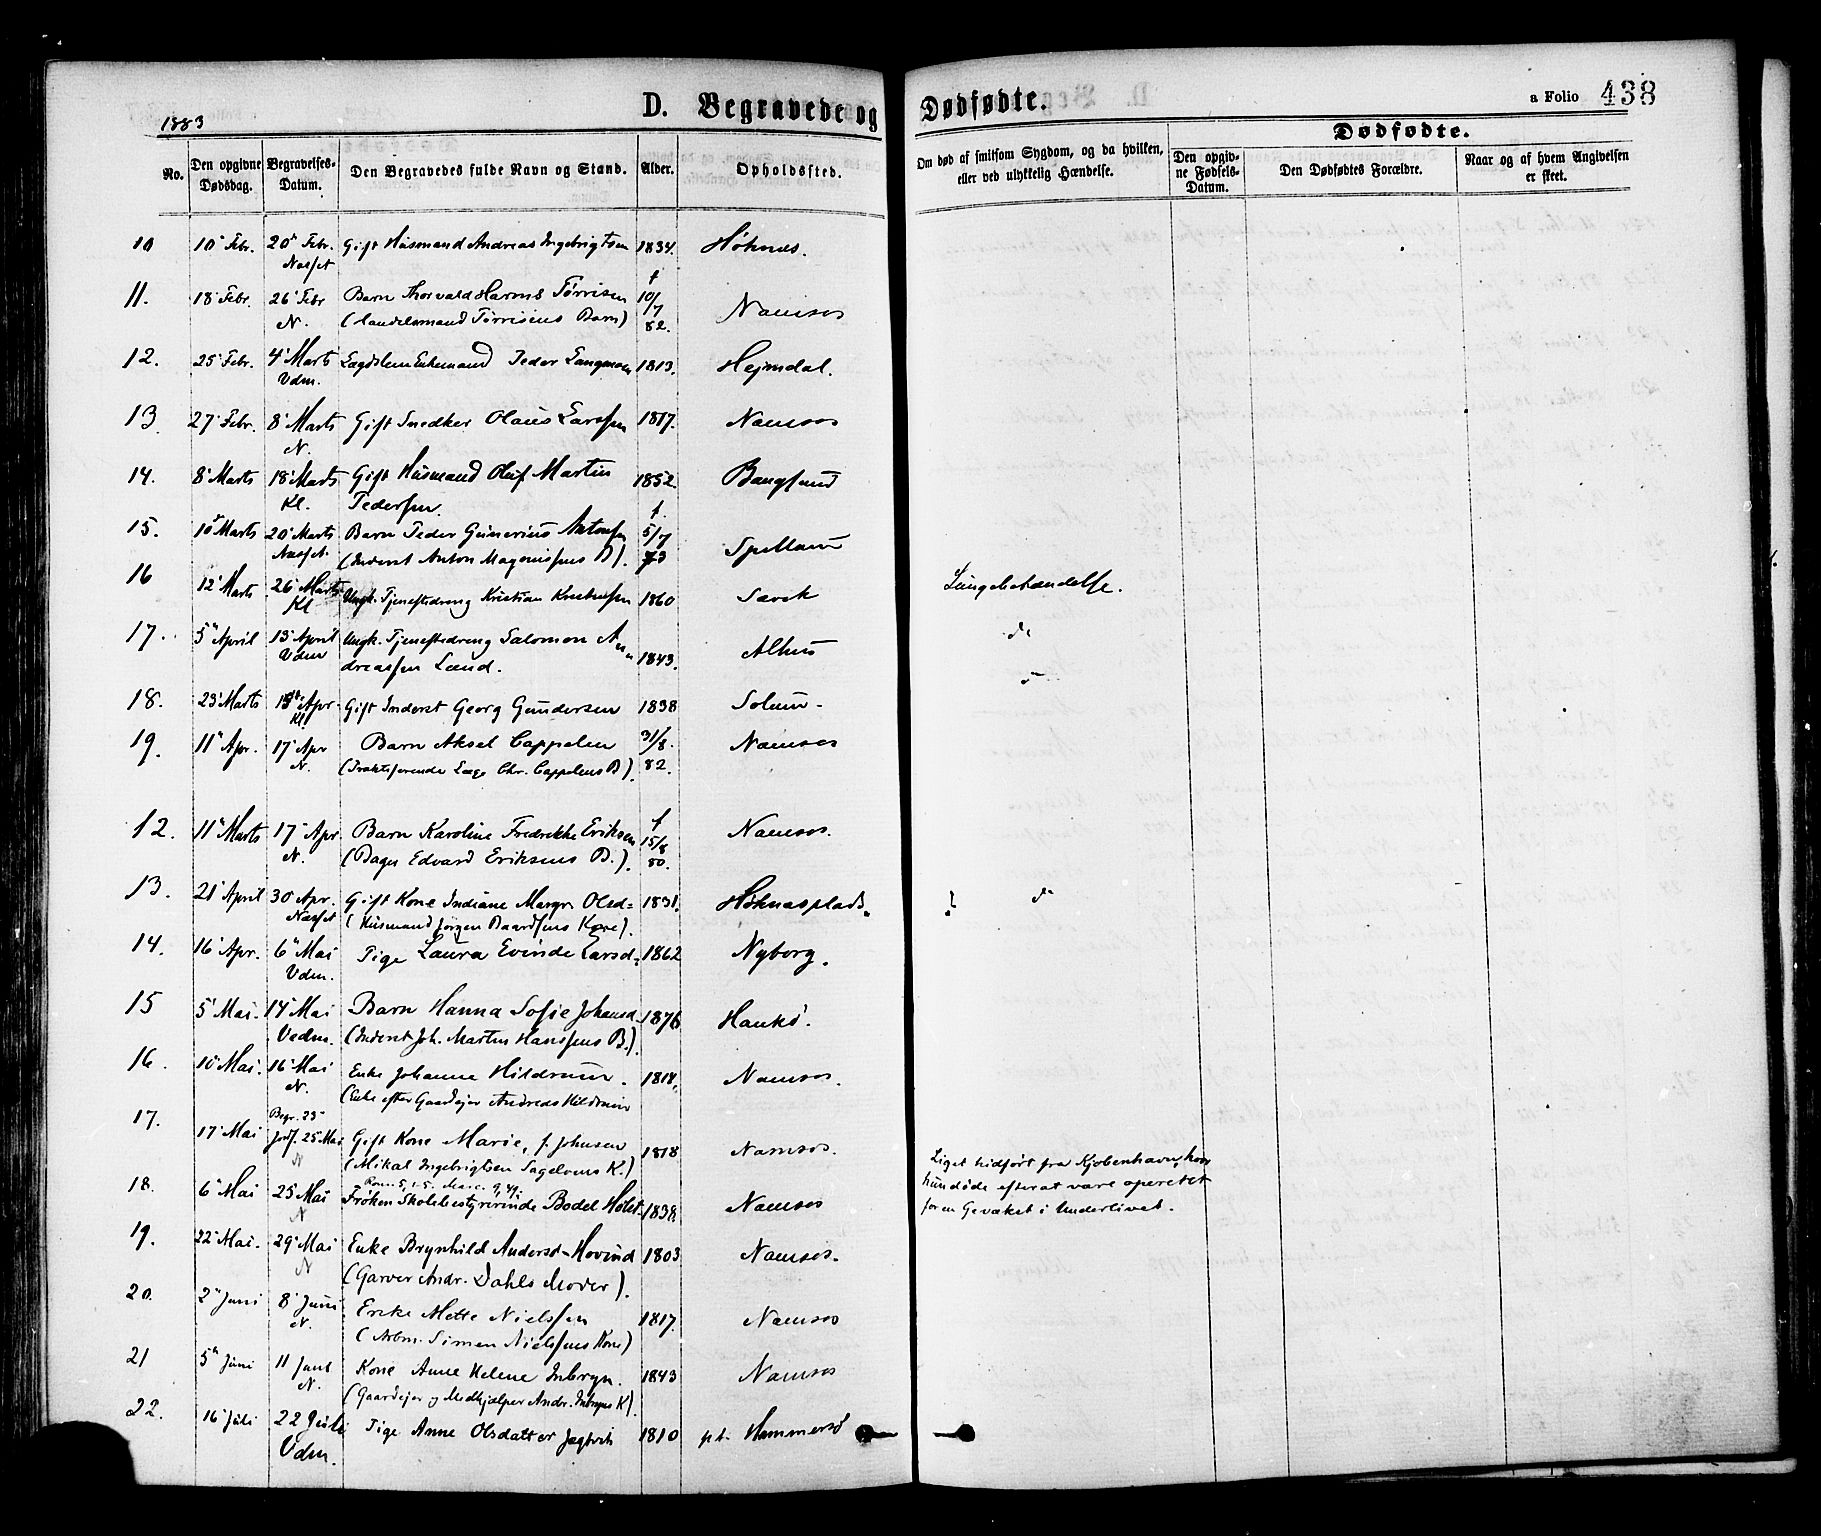 1883
D. Begravede og Dødfødte.
a Folio 438
No.
Den opgivne Dødsdag.
Begravelses-Datum.
Den Begravedes fulde Navn og Stand.
Alder.
Opholdssted.
Om død af smitsom Sygdom, og da hvilken, eller ved ulykkelig Hændelse.
Dødfødte.
Den opgivne Fødsels-Datum.
Den Dødfødtes Forældre.
Naar og af hvem Angivelsen er skeet.
10 10 Febr. 20 Febr. Gift Husmand Andreas Ingebrigtsen 1834. Høknes.
11. 18 Febr. 26 Febr Barn Thorvald Harms Tørrisen f 10/7 82. Namsos
N. (Handelsmand Tørrisens Barn)
12. 25 Febr. 4 Marts Lægdslem Enkemand Peder 1813. Hejmdal.
Vdm.
13 27 Febr. 8 Marts Gift Snedker Olaus Larssen 1817. Namsos
N.
14. 8 Marts 18 Marts Gift Husmand Oluf Martin 1852. Bangsund
Kl. Pedersen.
15. 10 Marts 20 Marts Barn Peder Gunerius Antonsen f. 5/7 73 Spillum
(Inderst Anton Magnussens B).
16 12 Marts 26 Marts Ungk. Tjenestedreng Kristian 1860 Lungebetændelse.
Kl
17. 5 April 13 April Ungk. Tjenestedreng Salomon An- 1843. Alhus do
Vdm dreassen Lund.
18. 23 Marts Apr Gift Inderst Georg Gundersen 1838 Solum
Kl
19. 11 Apr. 17 Apr Barn Aksel Cappelen 31/8. 82. Namsos
N. (Praktiserende Læge Chr. Cappelens B).
12. 11 Marts 17 Apr Barn Karoline Fredrikke Eriksen f 15/8 80. Namsos.
N. (Bager Edvard Eriksens B.).
13. 21 April 30 Apr. Gift Kone Indiane Margr. Olsd= 1831. Høknesplads. do
(Husmand Jørgen Baardsens Kone).
14. 16 Apr. 6 Mai Pige Laura Evinde Larsd. 1862 Nyborg.
Vdm.
15 5 Mai. 14 Mai Barn Hanna Sofie Johansd. 1876
Vedm. (Inderst Joh. Martin Hanssens B.).
16. 10 Mai. 16 Mai Enke Johanne Hildrum. 1818. Namsos.
N. (Enke efter Gaardejer Andreas Hildrum
17. 17 Mai Begr. 23 Jordf. 25 Mai Gift Kone Marie, f. Johnsen 1818 Namsos.
N (Mikal Ingebrigtsen Sagelvens K.)
Rom. 5, 1-5. Marc. 9, 49.
18. 6 Mai 25 Mai Frøken Skolebestyrerinde Bodel Holst 1838. Namsos
N
Liget hidført fra Kjøbenhavn, hvor
hun døde efter at være operert
for en Gevækst i Underlivet.
19. 22 Mai. 29 Mai Enke Brynhild Andersd. Hovind 1803 Namsos.
N (Garver Andr. Dahls Moder).
20. 2 Juni 8 Juni Enke Mette Nielssen 1817. Namsos
N. (Arbm. Simon Nielssens Kone)
21 5 Juni 11 Juni Kone Anne Helene Inbryn. 1843 Namsos
N. (Gaardejer og Medhjælper Andr. Inbryns K).
22. 16 Juli 22 Juli Pige Anne Olsdatter 1810 pt. Hammersø
Vdm.